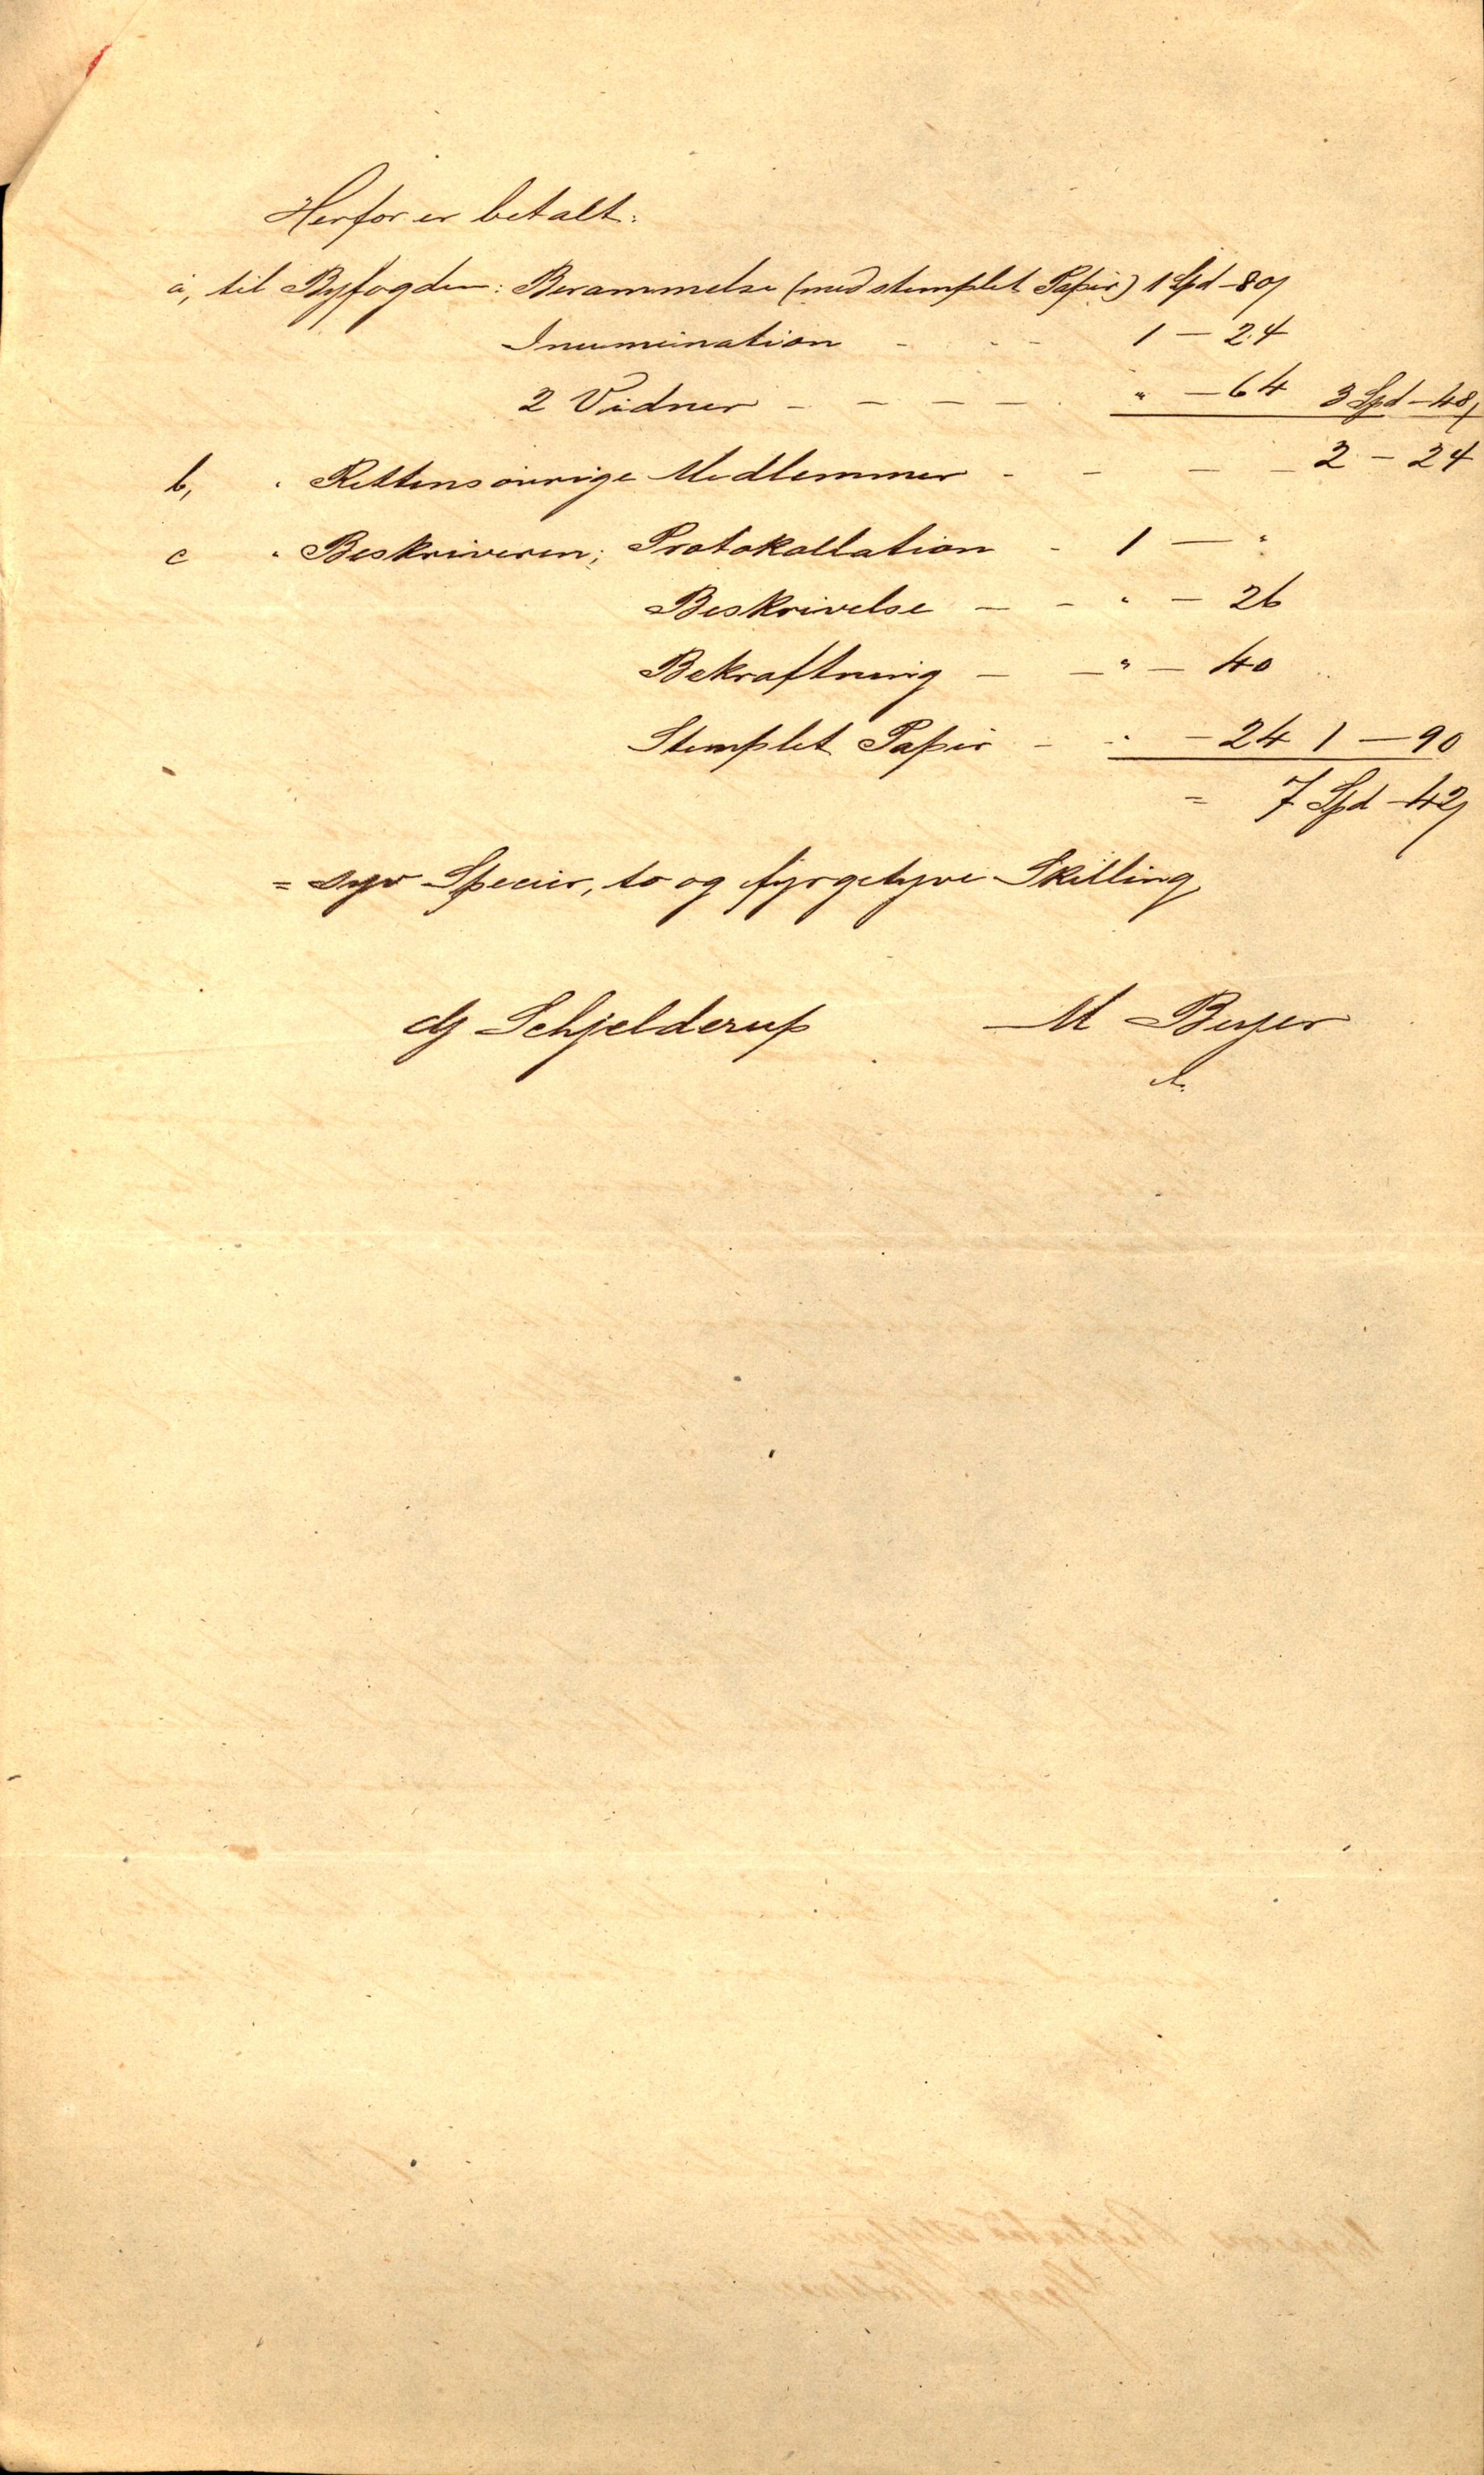 Herfor er betalt:
a, til Byfogden: Berammelse (med stemplet Papir) 1 Spd - 80
Inumination - - - 1 - 24
2 Vidner - - - - " - 64 3 Spd - 48
b, " Rettens øvrige Medlemmer - - - - 2 - 24
c " Beskriveren; Protokollation - 1 - "
Beskrivelse - - " - 26
Bekræftning - - " - 40
Stemplet Papir - " - 24 1 - 90
= 7 Spd - 42
= syv Specier, to og fyrgetyve Skilling
Schjelderup M Beyer